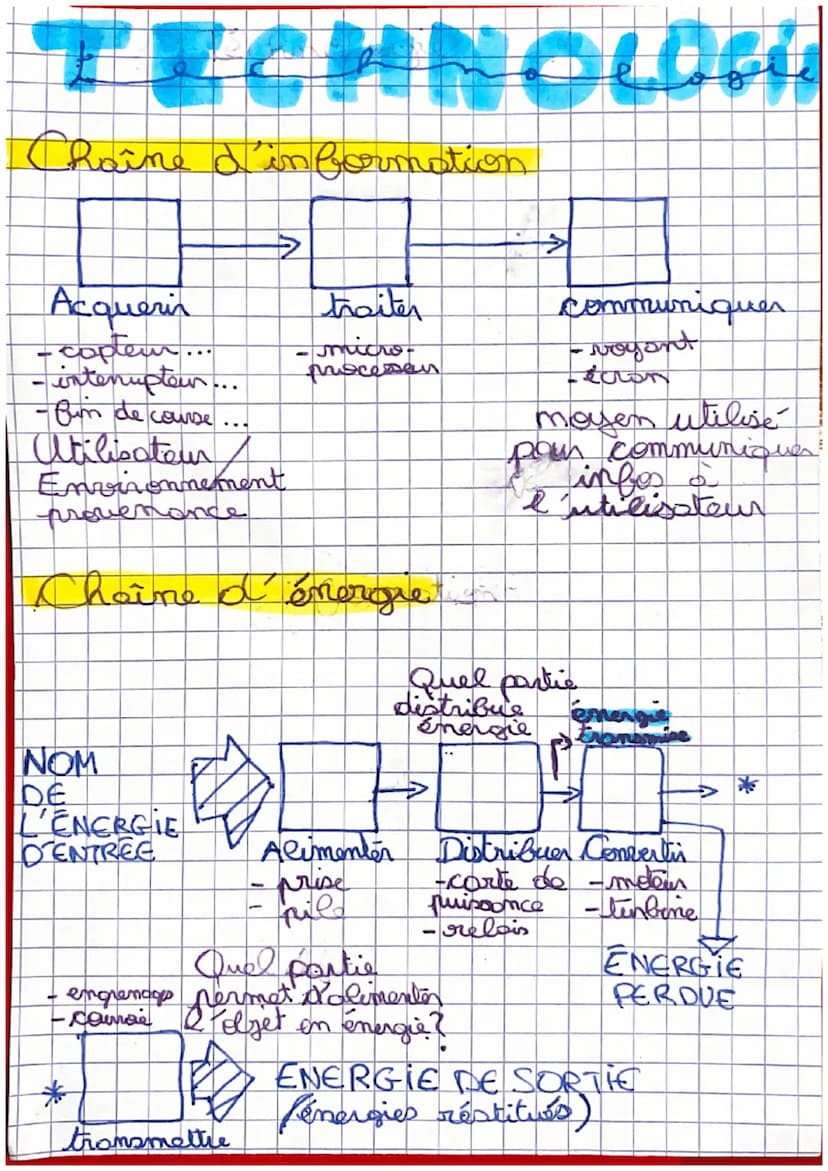 TECHNOLOGIE
Technologie
Chaîne d'information
Acquerir
traiter
communiquer
- capteur...
- interrupteur...
- fin de course...
Utilisateur /
Environnement
provenance
- micro-
processeur
- voyant
- écran
moyen utilisé
pour communiquer
infos à
l'utilisateur
Chaîne d'énergie
Quel partie
distribue
énergie
énergie
transmise
NOM
DE
L'ÉNERGIE
D'ENTRÉE
*
Alimenter
- prise
- pile
Distribuer
- carte de
puissance
- relais
Convertir
- moteur
- turbine
ÉNERGIE
PERDUE
Quel partie
permet d'alimenter
l'objet en énergie?
- engrenage
- courroie
*
transmettre
ENERGIE DE SORTIE
(énergies réstitués)